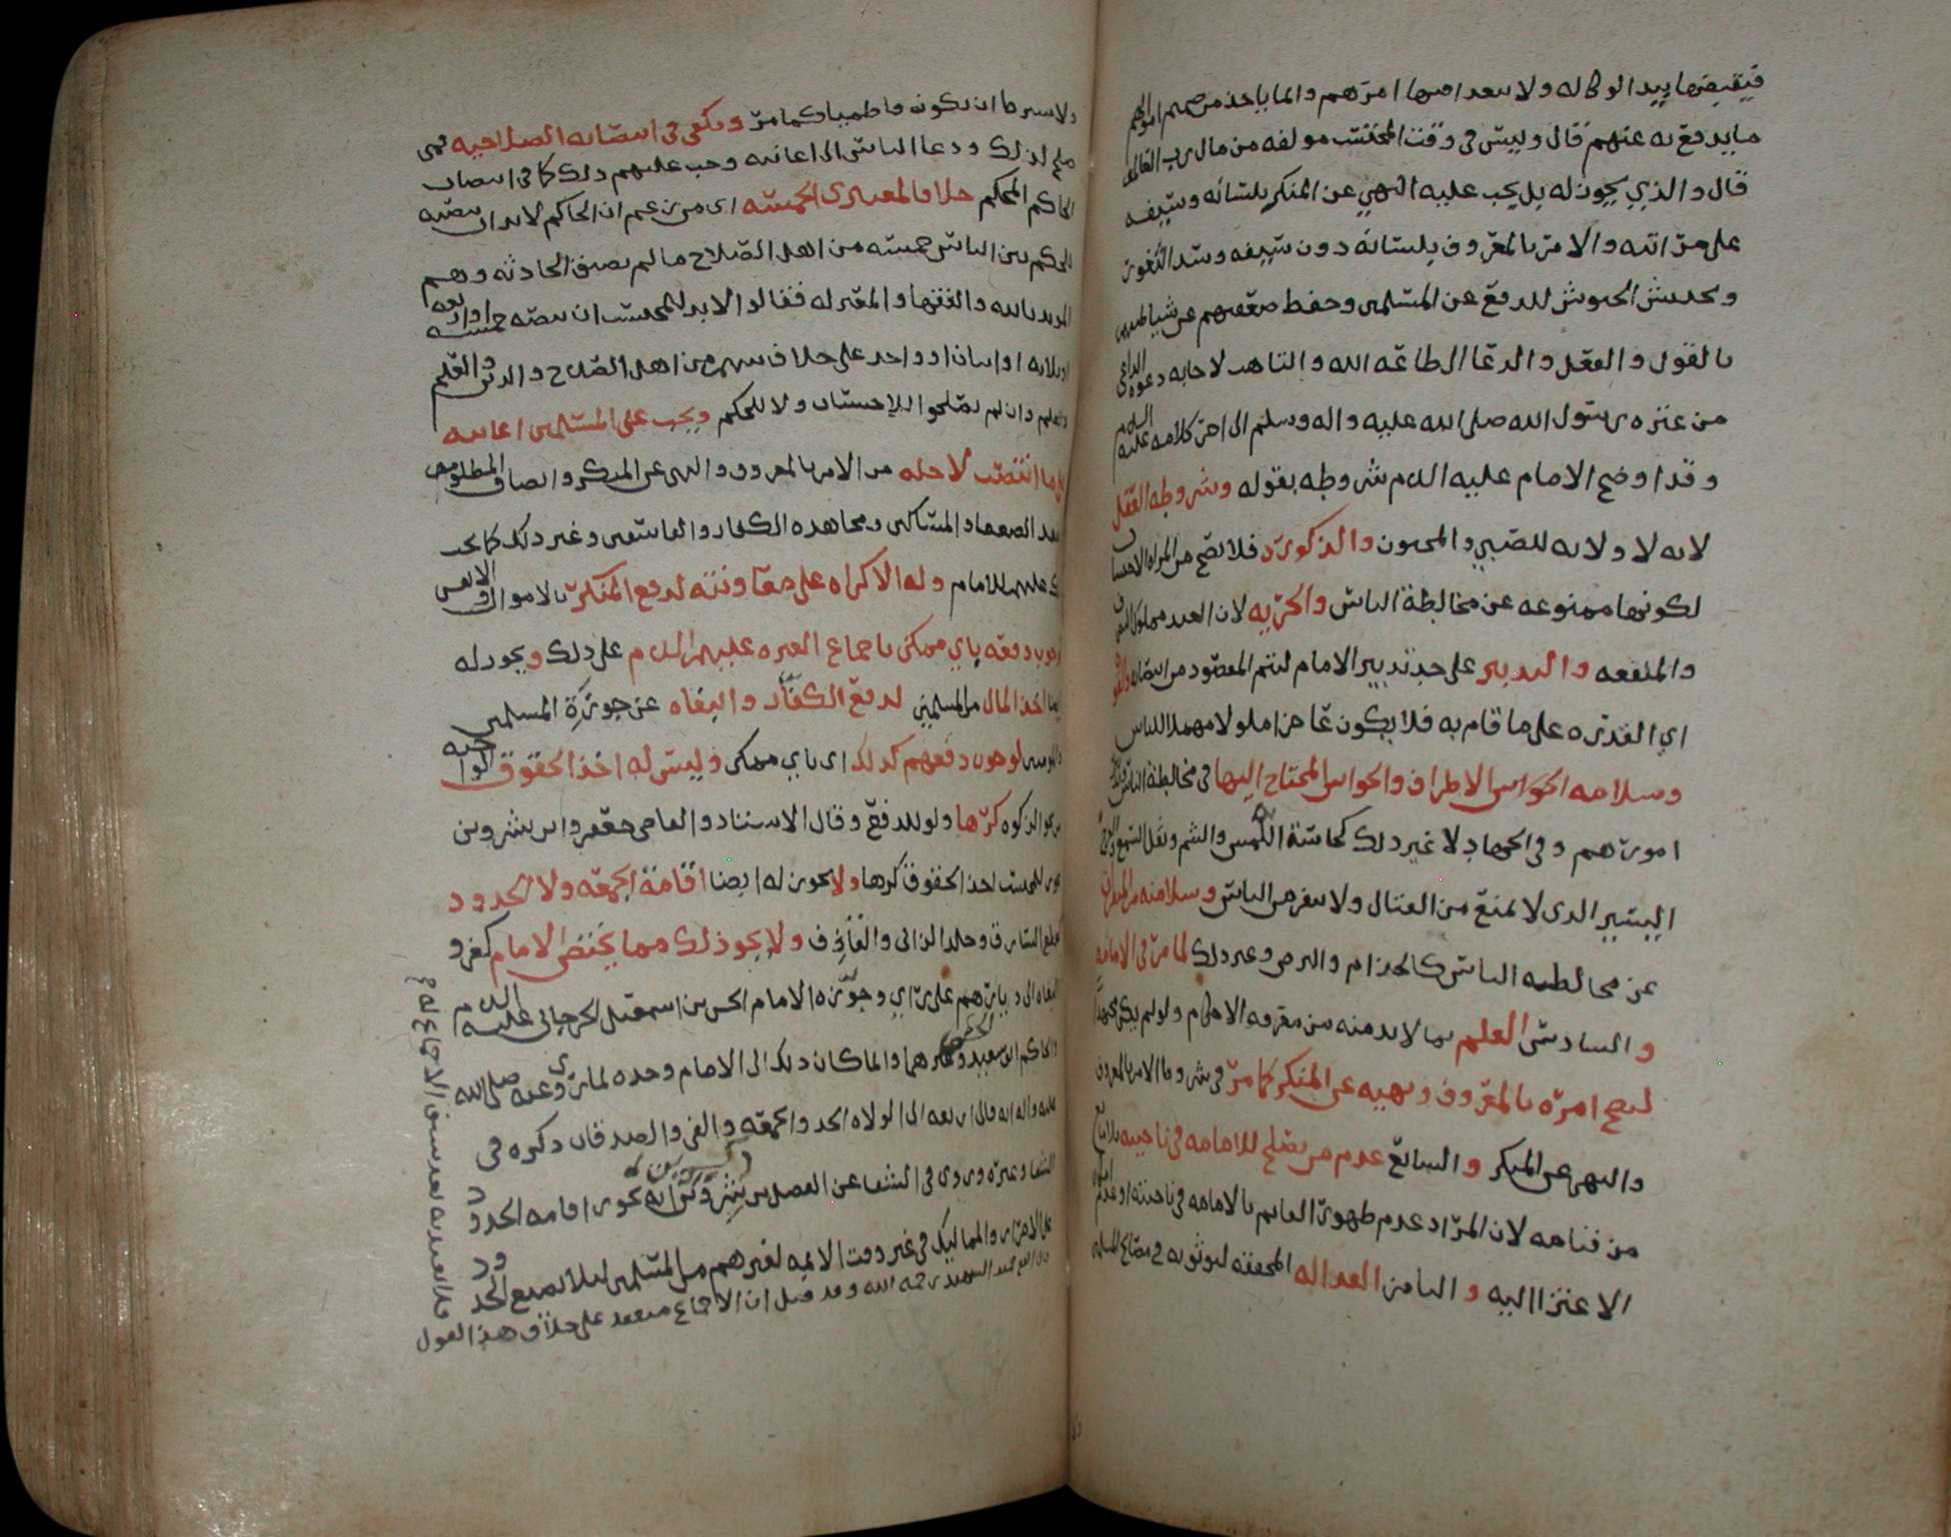 فيقبضها بيد الوكاله ولا بعد امرهم وانما ياخذ من اموالهم
ما يدفع به عنهم قال وليس في وقت المحتسب من مال
قال والذي يجوز له بل يجب عليه النهي عن المنكر بلسانه وسيفه
على مراتبه والامر بالمعروف بلسانه دون سيفه وسد الثغور
وتجييش الجيوش للدفع عن المسلمين وحفظ ضعفهم عن شياطينهم
بالقول والفعل والدعا الى طاعة الله والتاهب لاجابه دعوه الداعي
من عترة رسول الله صلى الله عليه واله وسلم الى اخر كلامه عليه السلام
وقد اوضح الامام عليه السلام شروطه بقوله وشروطه العقل
لانه لا ولايه للصبي والمجنون والذكورة فلا تصح من المراة الاحتساب
لكونها ممنوعه عن مخالطة الناس والحريه لان العبد مملوك
والمنفعه والتدبير على حد تدبير الامام ليتم المقصود من انتصابه والقوة
اي القدره على ما قام به فلا يكون عاجزا ملولا مهملا للناس
وسلامه الحواس الاطراف والحواس المحتاج اليها في مخالطة الناس
امورهم وفي الجهاد لا غير ذلك كحاسة اللمس والشم وثقل السمع
اليسير الذي لا يمنع من القتال ولا ينفر من الناس وسلامته من المنفرات
عن مخالطه الناس كالجذام والبرص وغير ذلك لما مر في الامامه
والسادس العلم بما لا بد منه من معرفه الاحكام ولو لم يكن مجتهدا
ليصح امره بالمعروف ونهيه عن المنكر كما مر في شروط الامر بالمعروف
والنهي عن المنكر والسابع عدم من يصلح للامامه في ناحيته
من قيامه لان المراد عدم ظهور القايم بالامامه في ناحيته او عدم
الاعتزا اليه والثامن العدالة المحققه ليوثق به في مصالح المسلمين
ولا يشترط ان يكون فاطميا كما مر ويكفي في انتصابه الصلاحيه فمن
صلح لذلك ودعا الناس الى اعانته وجب عليهم ذلك كما في انتصاب
الحاكم المحكم خلافا لمعتبري الخمسة اي من زعم ان الحاكم لا بد ان ينصبه
للحكم بين الناس خمسه من اهل الصلاح ما لم يضيق الحادثه وهم
المويد بالله والفقها والمعتزله فقالوا لا بد للمحتسب ان ينصبه خمسه او اربعه
او ثلاثه او اثنان او واحد على خلاف بينهم من اهل الصلاح والدين والعلم
وان لم يصلحوا للاحتساب ولا للحكم ويجب على المسلمين اعانته
على ما انتصب لاجله من الامر بالمعروف والنهي عن المنكر وانصاف المظلومين
الضعفا والمساكين ومجاهدة الكفار والفاسقين وغير ذلك كما يجب
عليهم للامام وله الاكراه على معاونته لدفع المنكر بالاموال والانفس
لوجوب دفعه باي ممكن باجماع العترة عليهم السلام على ذلك ويجوز له
ايضا اخذ المال من المسلمين لدفع الكفار والبغاه عن حوزة المسلمين
لوجوب دفعهم كذلك اي باي ممكن وليس له اخذ الحقوق الواجبه
من نحو الزكوه كرها ولو للدفع وقال الاستاذ والقاضي جعفر وابن شروين
يجوز للمحتسب اخذ الحقوق كرها ولا يجوز له ايضا اقامة الجمعه ولا الحدود
كقطع السارق وجلد الزاني والقاذف ولا يجوز ذلك مما يختص الامام كغزو
البغاه الى ديارهم على راي وجوزه الامام الحسن بن اسمعيل الجرجاني عليه السلام
والحاكم ابو سعيد وغيرهما وانما كان ذلك الى الامام وحده لما روي عنه صلى الله
عليه واله انه قال اربعه الى الولاه الحد والجمعه والفي والصدقات ذكره في
الشفا وغيره وروي في الشفا عن الفضل بن شروين انه يجوز اقامه الحدود
على الاحرار والمماليك في غير وقت الايمه لغيرهم من المسلمين لئلا تضيع الحدود
قال الفقيه حميد الشهيد رحمه الله وقد قيل ان الاجماع منعقد على خلاف هذا القول